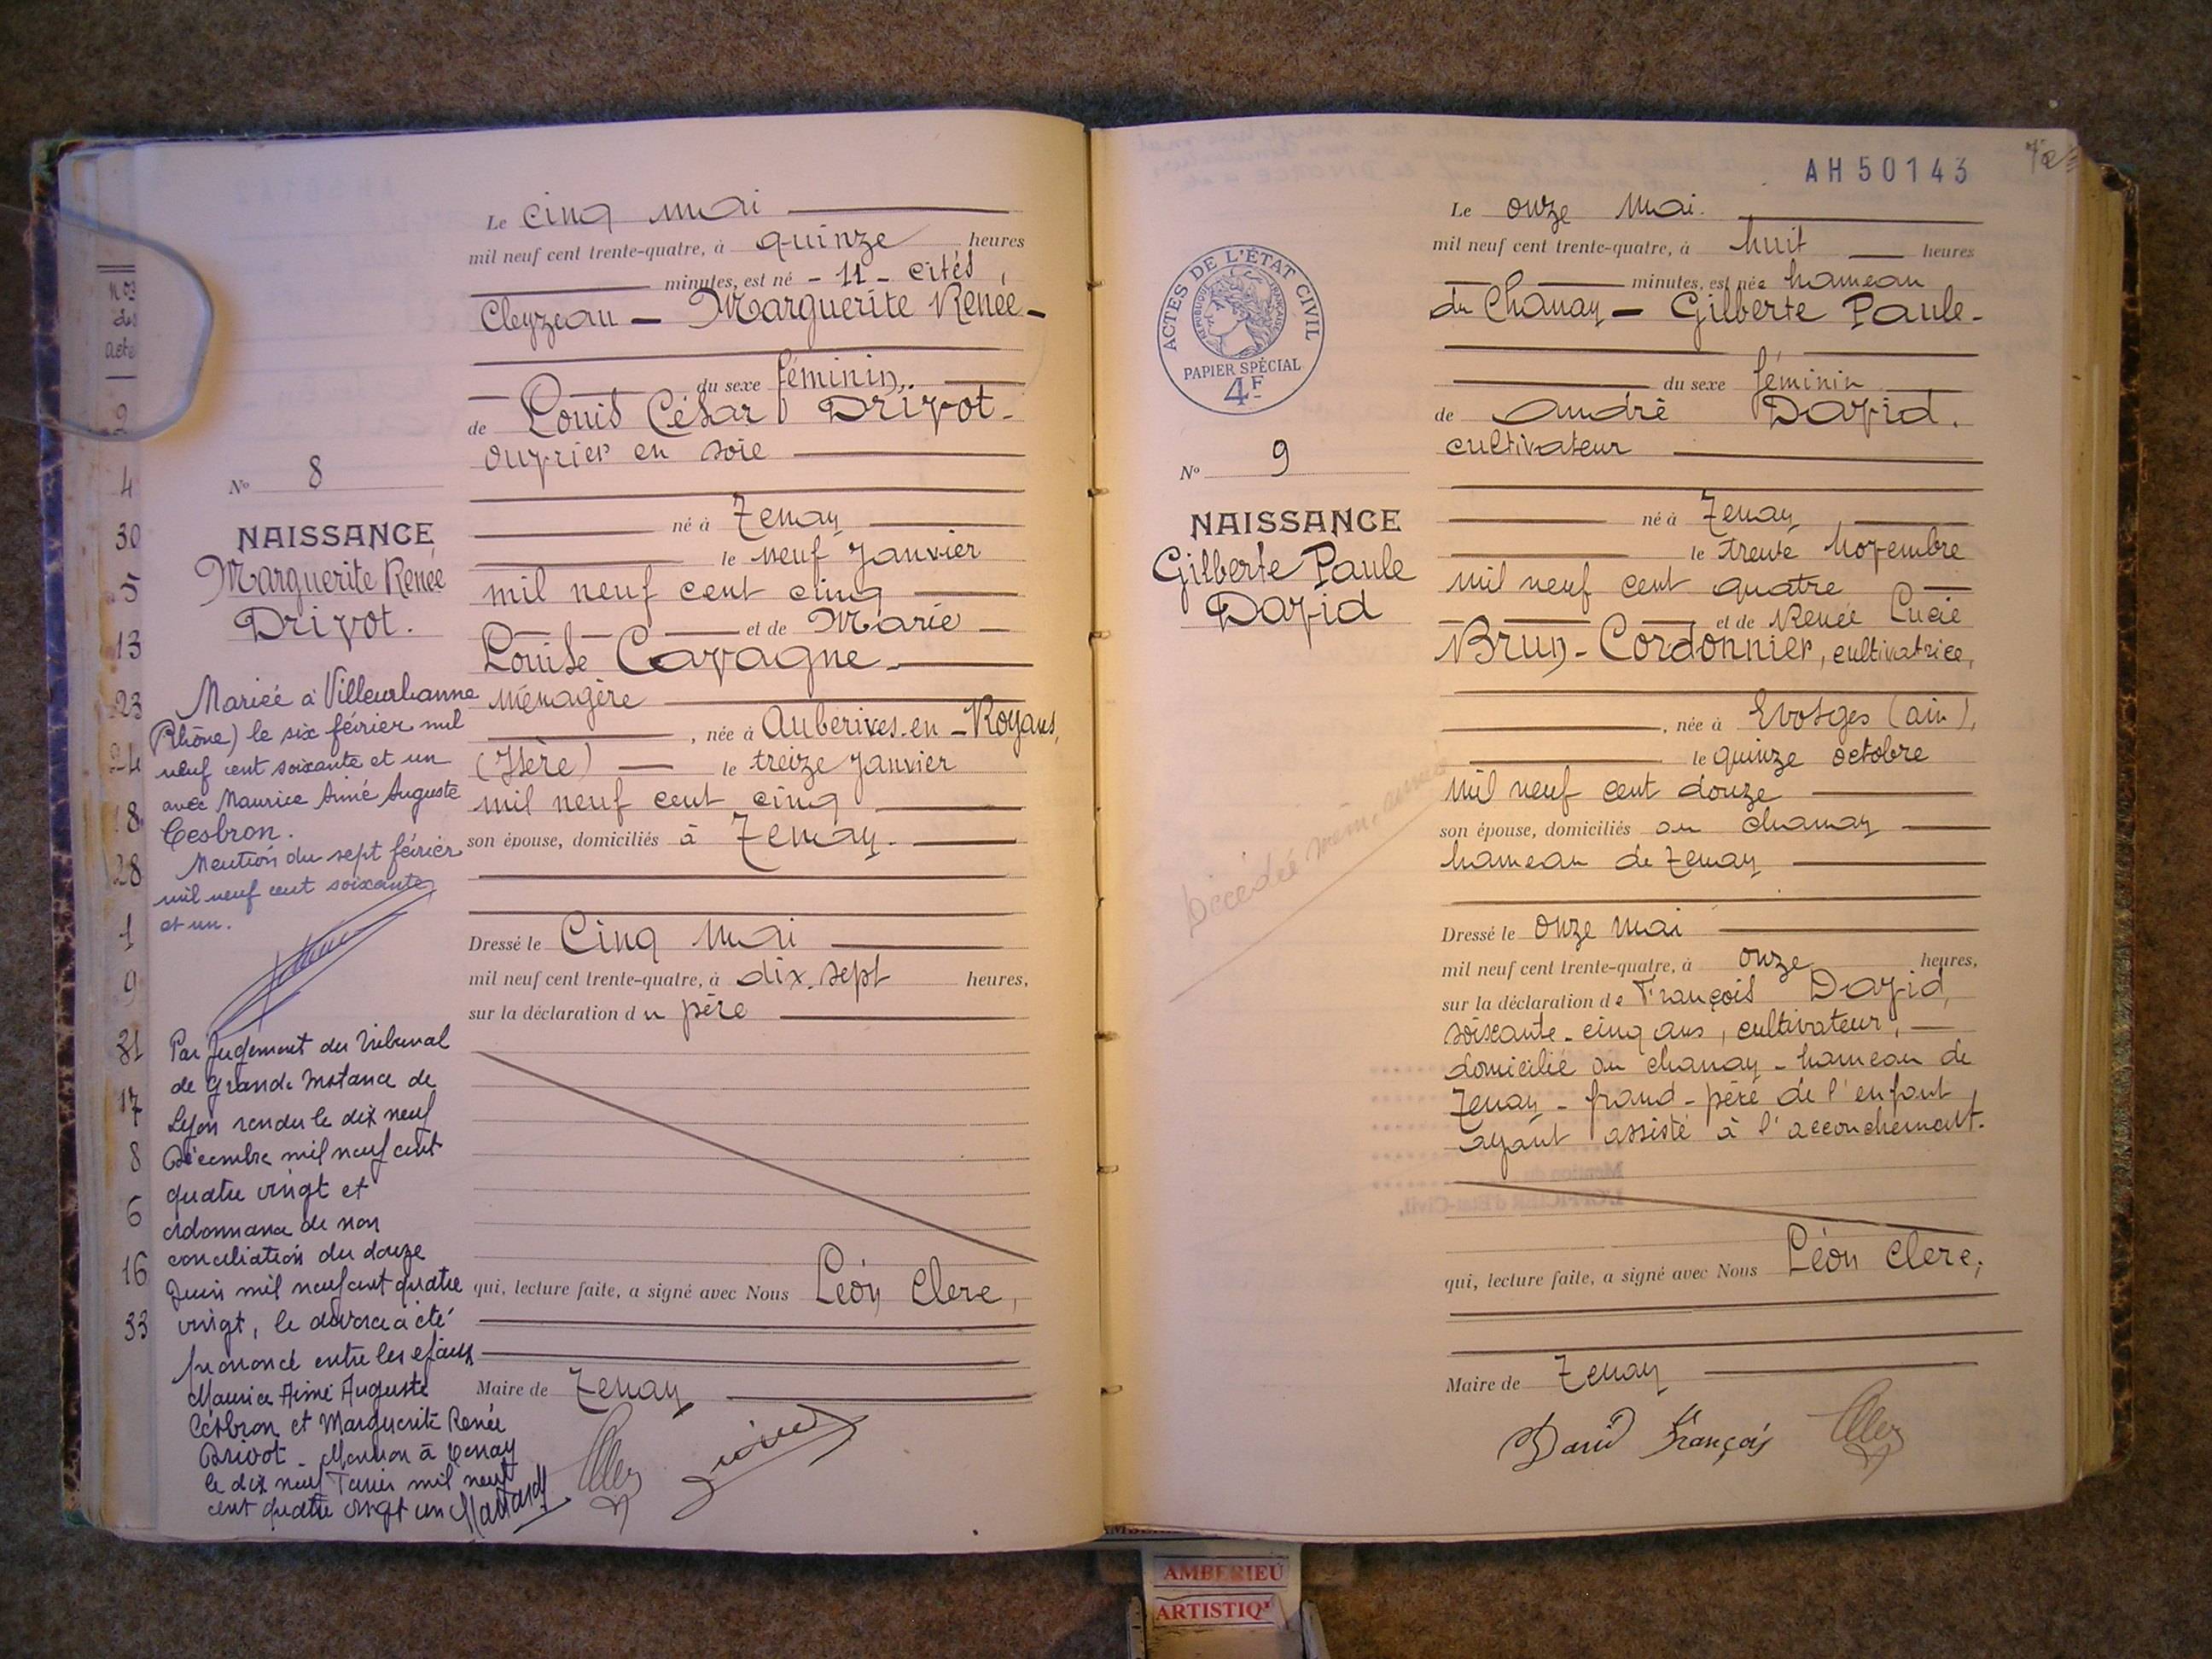 Nos
des
acte
2
4
30
5
13
23
24
18
28
1
9
31
17
8
6
16
33
No 8
NAISSANCE
Marguerite Renée
Drivot.
Mariée à Villeurbanne
(Rhône) le six février mil
neuf cent soixante et un
avec Maurice Aimé Auguste
Cesbron.
Mention du sept février
mil neuf cent soixante
et un.
Par Jugement du Tribunal
de Grande Instance de
Lyon rendu le dix neuf
Décembre mil neuf cent
quatre vingt et
ordonnance de non
conciliation du douze
Juin mil neuf cent quatre
vingt, le divorce a été
prononcé entre les époux
Maurice Aimé Auguste
Cesbron et Marguerite Renée
Drivot _ Mention à Tenay
le dix neuf Janvier mil neuf
cent quatre vingt un
Le cinq mai
mil neuf cent trente-quatre, à quinze heures
minutes, est né - 11 - cités
Cleyzeau — Marguerite Renée -
du sexe féminin,
de Louis César Drivot -
ouvrier en soie
né à Tenay
le neuf Janvier
mil neuf cent cinq
et de Marie
Louise Cavagne -
ménagère
, née à Auberives-en-Royans,
(Isère) — le treize Janvier
mil neuf cent cinq
son épouse, domiciliés à Tenay.
Dressé le Cinq Mai
mil neuf cent trente-quatre, à dix-sept heures,
sur la déclaration du père
qui, lecture faite, a signé avec Nous Léon Clerc,
Maire de Tenay
AH50143
72
ACTES DE L'ÉTAT CIVIL
RÉPUBLIQUE FRANÇAISE
PAPIER SPÉCIAL
4F
No 9
NAISSANCE
Gilberte Paule
David
Décédée même année
Le onze Mai.
mil neuf cent trente-quatre, à huit heures
minutes, est née hameau
du Chanay — Gilberte Paule -
du sexe féminin
de André David.
cultivateur
né à Tenay
le trente Novembre
mil neuf cent quatre
et de Renée Lucie
Brun-Cordonnier, cultivatrice,
, née à Evosges (ain),
le quinze octobre
mil neuf cent douze
son épouse, domiciliés au chanay
hameau de Tenay
Dressé le onze mai
mil neuf cent trente-quatre, à onze heures,
sur la déclaration de François David,
soixante-cinq ans, cultivateur, —
domicilié au chanay - hameau de
Tenay - grand-père de l'enfant
ayant assisté à l'accouchement.
qui, lecture faite, a signé avec Nous Léon Clerc,
Maire de Tenay
David François
AMBERIEU
ARTISTIQ